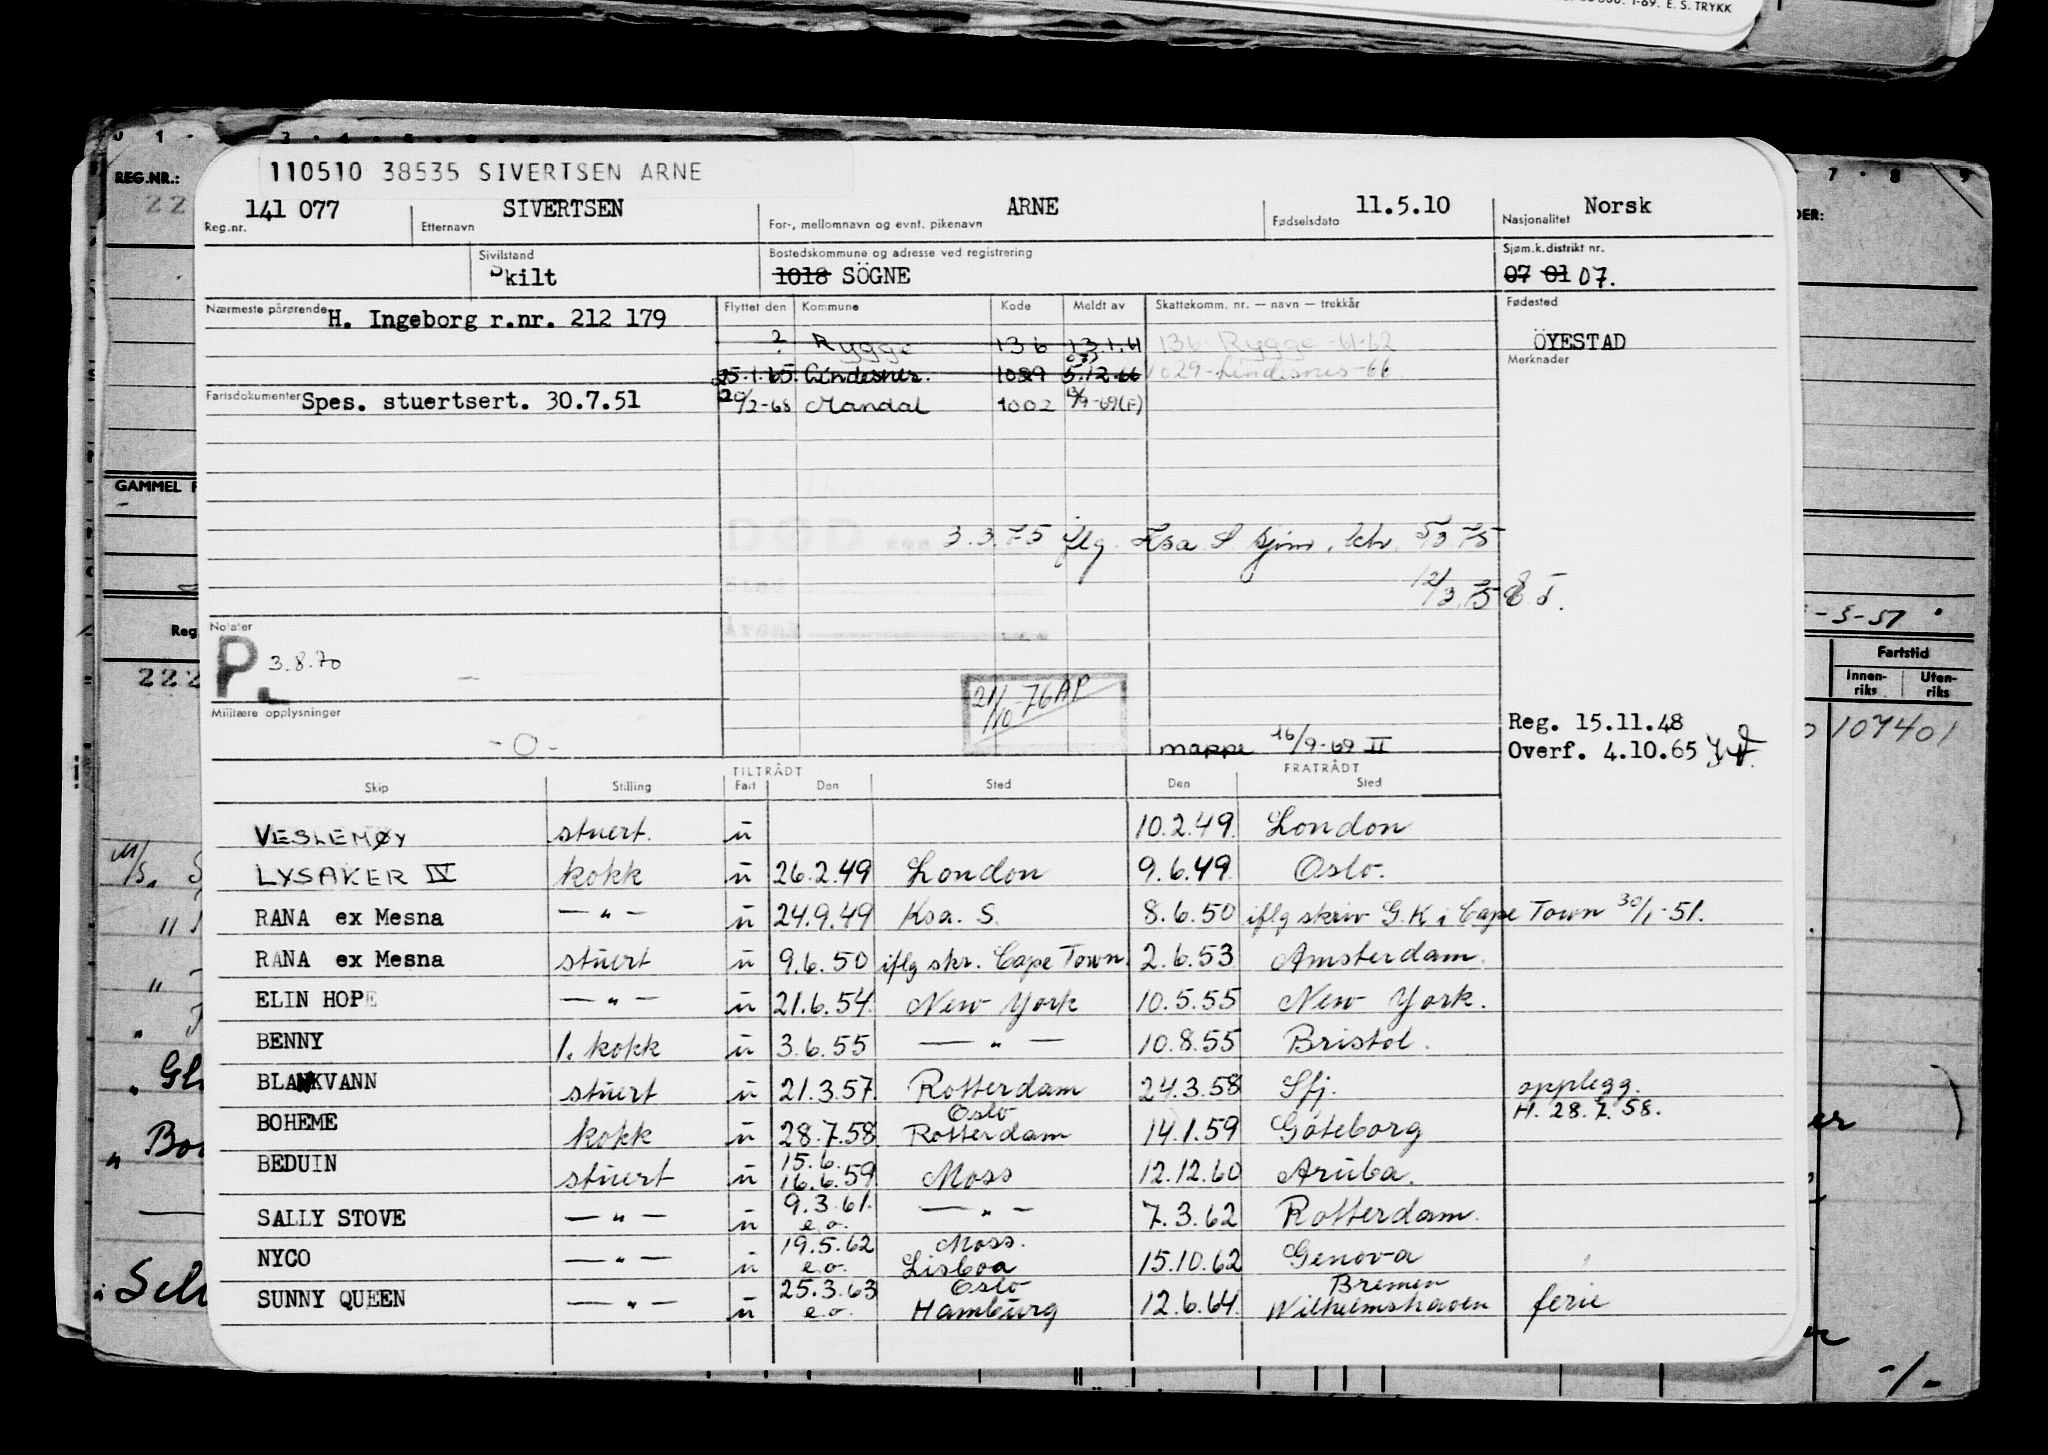 1-69. E. S. TRYKK
REG.NR.:
110510 38535 SIVERTSEN ARNE
141 077 SIVERTSEN ARNE 11.5.10 Norsk
Reg.nr. Etternavn For-, mellomnavn og evnt. pikenavn Fødselsdato Nasjonalitet
Sivilstand Bostedskommune og adresse ved registrering Sjøm.k.distrikt nr.
Skilt 1018 SÖGNE 07 01 07.
Nærmeste pårørende H. Ingeborg r.nr. 212 179 Flyttet den Kommune Kode Meldt av Skattekomm. nr. — navn — trekkår Fødested
? Rygge 136 13.1.61 136 Rygge 61-62 ÖYESTAD
Merknader
25.1.65. Lindesnes. 1029 5.12.66 1029-Lindesnes-66.
Fartsdokumenter Spes. stuertsert. 30.7.51 20/2-68 Mandal 1002 -69(F)
GAMMEL
3.3.75 iflg. Ksa S 
12/3.75
Notater
P. 3.8.70
21/10-76 AP
Militære opplysninger
-0-
mappe 16/9-69 II
Reg. 15.11.48
Overf. 4.10.65
Fartstid
Innen-riks Uten-riks
107401
TILTRÅDT FRATRÅDT
Skip Stilling Fart Den Sted Den Sted
VESLEMØY stuert. u 10.2.49. London
LYSAKER IV kokk u 26.2.49 London 9.6.49. Oslo.
RANA ex Mesna — " — u 24.9.49 Ksa. S. 8.6.50 iflg skriv G.K i Cape Town 30/1-51.
RANA ex Mesna stuert u 9.6.50 iflg skr. Cape Town. 2.6.53 Amsterdam.
ELIN HOPE — " — u 21.6.54 New York 10.5.55 New York.
BENNY 1. kokk u 3.6.55 — " — 10.8.55 Bristol.
BLANKVANN stuert u 21.3.57. Rotterdam 24.3.58 Sfj. opplegg.
H. 28.7.58.
BOHEME kokk u 28.7.58 Oslo Rotterdam 14.1.59 Göteborg
BEDUIN stuert u 15.6. 16.6.59 Moss 12.12.60 Aruba.
SALLY STOVE — " — u 9.3.61. e.o. — " — 7.3.62 Rotterdam.
NYCO — " — u 19.5.62 e.o. Moss. Lisboa 15.10.62 Genova
SUNNY QUEEN — " — u 25.3.63 e.o. Oslo Hamburg 12.6.64. Bremen Wilhelmshaven ferie